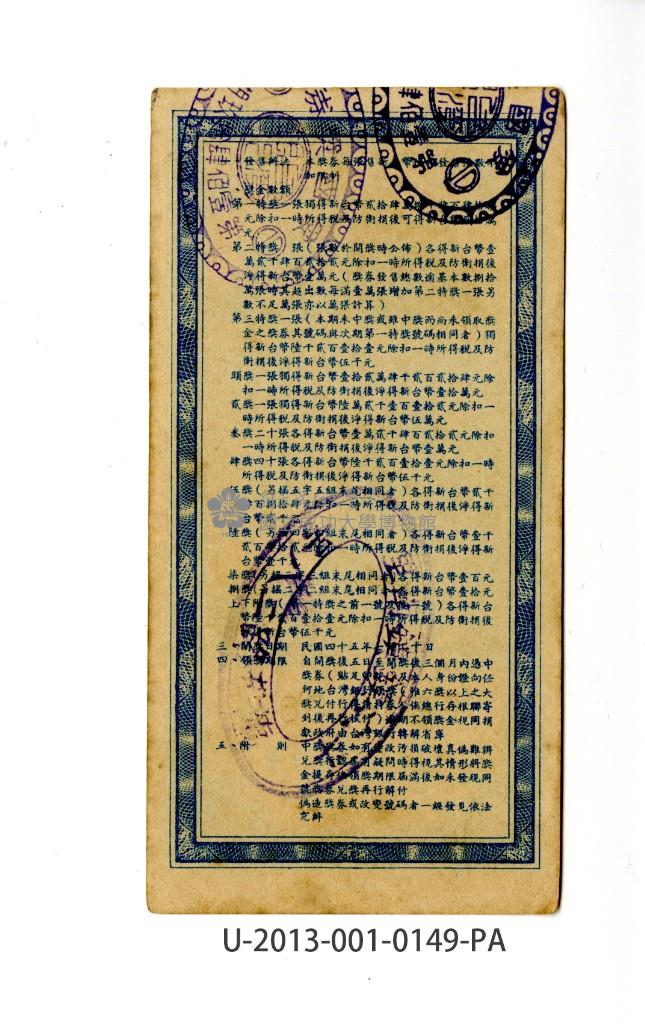 發售辦法 本獎券每張售新
加限制
獎金數額
第一特獎一張獨得新台幣貳拾肆萬
元除扣一時所得稅及防衛捐後可得新台幣
元
第二特獎 張(張數於開獎時公佈)各得新台幣壹
萬貳千肆百貳拾貳元除扣一時所得稅及防衛捐後
淨得新台幣壹萬元(獎券發售總數逾基本數捌拾
萬張時其超出數每滿壹萬張增加第二特獎一張另
數不足萬張亦以萬張計算)
第三特獎一張(本期未中獎或雖中獎而尚未領取獎
金之獎券其號碼與次期第一特獎號碼相同者)獨
得新台幣陸千貳百壹拾壹元除扣一時所得稅及防
衛捐後淨得新台幣伍千元
頭獎一張獨得新台幣壹拾貳萬肆千貳百貳拾肆元除
扣一時所得稅及防衛捐後淨得新台幣壹拾萬元
貳獎一張獨得新台幣陸萬貳千壹百壹拾貳元除扣一
時所得稅及防衛捐後淨得新台幣伍萬元
叁獎二十張各得新台幣壹萬貳千肆百貳拾貳元除扣
一時所得稅及防衛捐後淨得新台幣壹萬元
肆獎四十張各得新台幣陸千貳百壹拾壹元除扣一時
所得稅及防衛捐後淨得新台幣伍千元
伍獎(另搖五字五組末尾相同者)各得新台幣貳千
百捌拾肆元除扣一時所得稅及防衛捐後淨得新
台幣
陸獎(另搖四字 組末尾相同者)各得新台幣壹千
貳百 元除扣一時所得稅及防衛捐後淨得新
台幣壹千
柒獎(另搖三字 組末尾相同者)各得新台幣壹百元
捌獎(另搖二 組末尾相同者)各得新台幣
上下附獎 特獎之前一號及後一號)各得新台
幣陸千貳百壹拾壹元除扣一時所得稅及防衛捐後
淨得新台幣伍千元
三、開獎日期 民國四十五年 十日
四、領獎期限 自開獎後五日至開獎後三個月內憑中
獎券(貼足印花)及本人身份證向任
何地台灣銀行領獎(唯六獎以上之大
獎兌付行得請持券人俟總行存根聯寄
到後再行核付)逾期不領獎金視同捐
獻政府由台灣銀行轉解省庫
五、附 則 中獎獎券如有塗改污損破壞真偽難辨
兌獎行認為有疑問時得視其情形將獎
金提存俟領獎期限屆滿後如未發現同
號獎券兌獎再行解付
偽造獎券或改變號碼者一經發見依法
究辦
U-2013-001-0149-PA